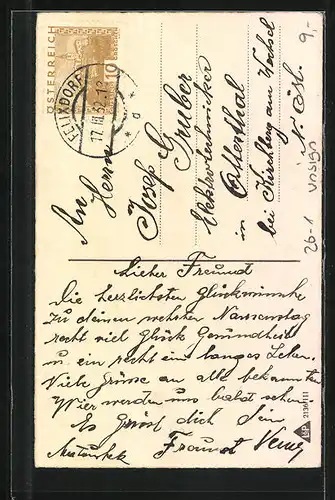 ÖSTERREICH
10
FELIXDORF
17.III.32.12
* d *
9,-
An Herrn
Josef Gruber
Elektrotechnicker
in Otterthal
bei Kirchberg am Wechsel
N. Öst.
26-1 unsign
Lieber Freund
Die herzlichsten Glückwünsche
zu deinen Namenstag
recht viel Glück Gesundheit
u. ein recht ein langes Leben.
Viele Grüsse an alle bekannten
Wier werden uns balst sehen.
Es grüst dich Dein
Freund
2136/III